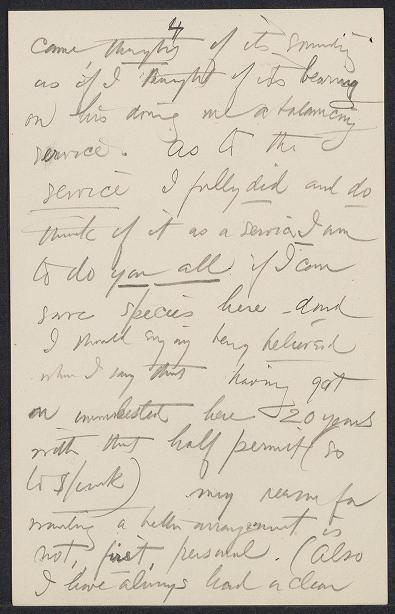 4
came thoughts of its sounding
as if I thought of its bearing
on his doing me a balancing
service. As to the
service I fully did and do
think of it as a service I am
to do you all if I can
save species here and
I should enjoy being believed
when I say that having got
here 20 years
with that half permit (so
to speak) my reason for
wanting a better arrangement is
not, first, personal. (Also
I have always had a clear